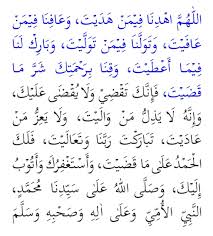 اَللّٰهُمَّ اهْدِنَا فِيْمَنْ هَدَيْتَ، وَعَافِنَا فِيْمَنْ
عَافَيْتَ، وَتَوَلَّنَا فِيْمَنْ تَوَلَّيْتَ، وَبَارِكْ لَنَا
فِيْمَا أَعْطَيْتَ، وَقِنَا بِرَحْمَتِكَ شَرَّ مَا
قَضَيْتَ، فَإِنَّكَ تَقْضِيْ وَلَا يُقْضَى عَلَيْكَ،
وَإِنَّهُ لَا يَذِلُّ مَنْ وَالَيْتَ، وَلَا يَعِزُّ مَنْ
عَادَيْتَ، تَبَارَكْتَ رَبَّنَا وَتَعَالَيْتَ، فَلَكَ
الْحَمْدُ عَلَى مَا قَضَيْتَ، وَأَسْتَغْفِرُكَ وَأَتُوْبُ
إِلَيْكَ، وَصَلَّى اللهُ عَلَى سَيِّدِنَا مُحَمَّدٍ،
النَّبِيِّ الْأُمِّيِّ وَعَلَى اٰلِهِ وَصَحْبِهِ وَسَلَّمَ